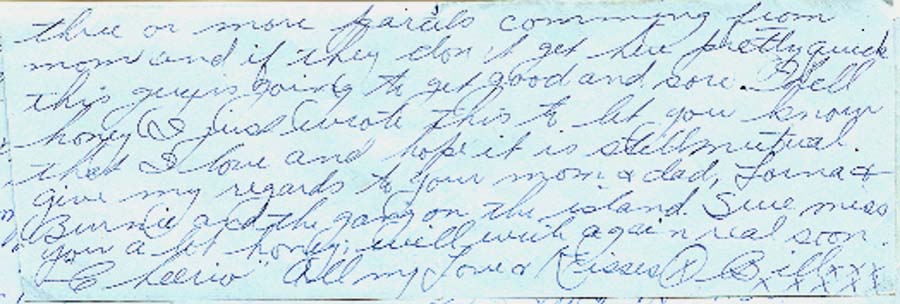 three or more parcels comming from
mom and if they don't get here pretty quick
this guys going to get good and sore. Well
honey I just wrote this to let you know
that I love and hope it is still mutual.
give my regards to your mom & dad, Lorna &
Burnie and the gang on the island. Sure miss
you a lot honey, will write again real soon.
Cheerio All my Love & Kisses Bill xxx
xxxxx